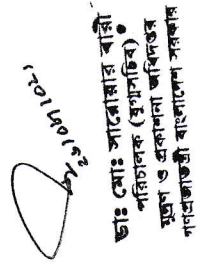 ডাঃ মোঃ সারোয়ার বারী
পরিচালক (যুগ্মসচিব)
মুদ্রণ ও প্রকাশনা অধিদপ্তর
গণপ্রজাতন্ত্রী বাংলাদেশ সরকার